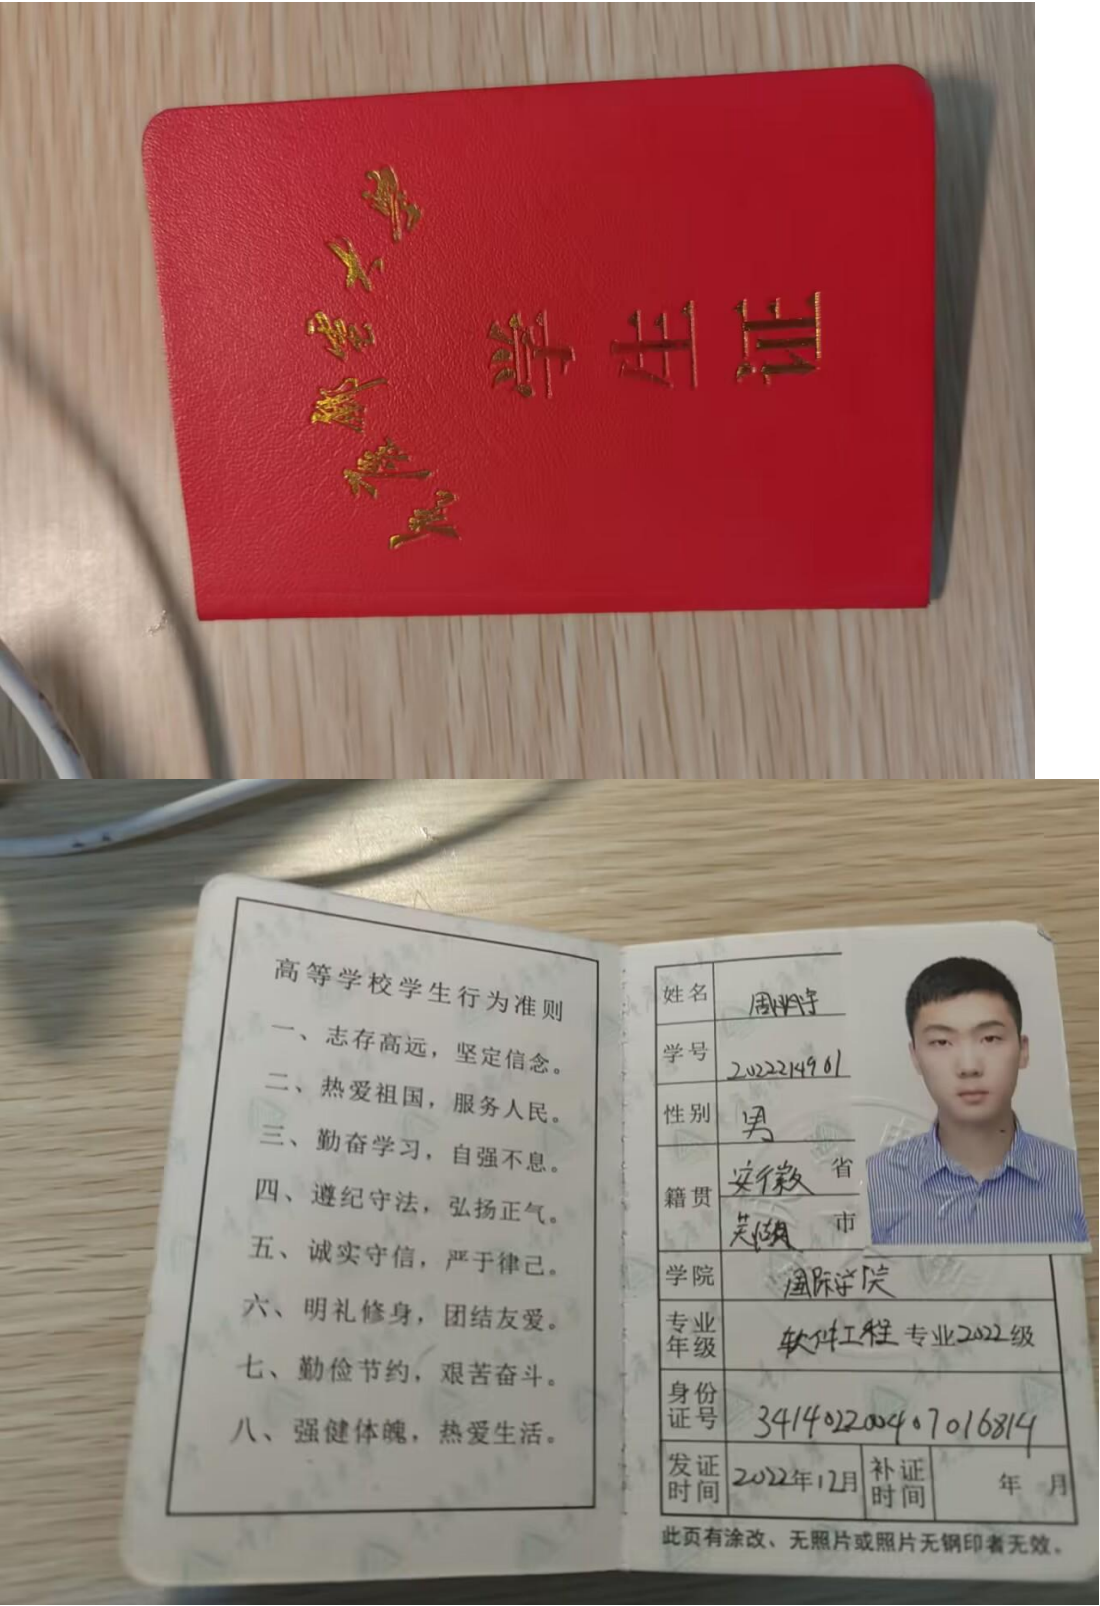 重慶郵電大學
学生证
高等学校学生行为准则
一、志存高远，坚定信念。
二、热爱祖国，服务人民。
三、勤奋学习，自强不息。
四、遵纪守法，弘扬正气。
五、诚实守信，严于律己。
六、明礼修身，团结友爱。
七、勤俭节约，艰苦奋斗。
八、强健体魄，热爱生活。
姓名 周 宇
学号 2022214901
性别 男
籍贯 安徽 省
芜湖 市
学院 国际学院
专业年级 软件工程 专业2022级
身份证号 341402200407016814
发证时间 2022年12月 补证时间 年 月
此页有涂改、无照片或照片无钢印者无效。